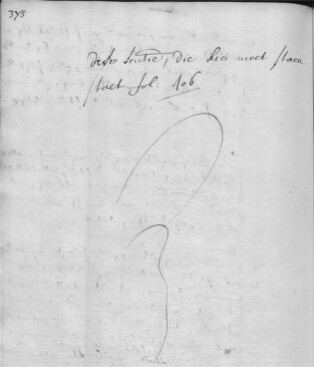 373
dese sentie, die hier moet staen
staet fol: 106